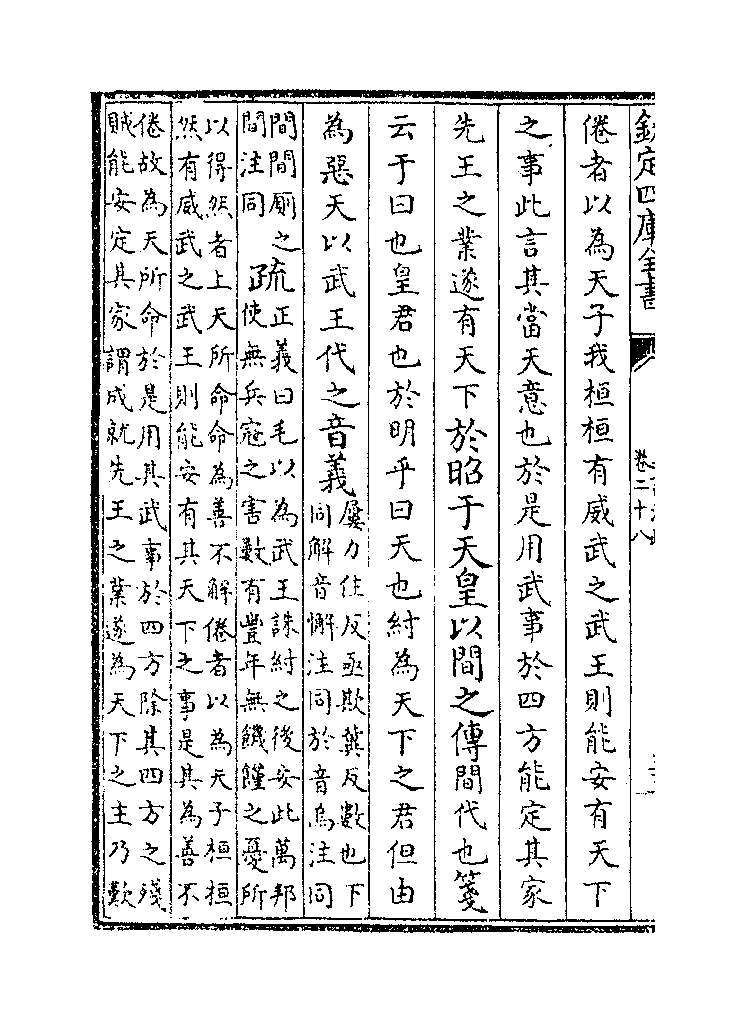 欽定四庫全書
卷二十八
倦者以為天子我桓桓有威武之武王則能安有天下
之事此言其當天意也於是用武事於四方能定其家
先王之業遂有天下於昭于天皇以間之傳間代也箋
云于曰也皇君也於明乎曰天也紂為天下之君但由
為惡天以武王代之音義
屢力住反亟欺冀反數也下
同解音懈注同於音烏注同
間間厠之
間注同
疏
正義曰毛以為武王誅紂之後安此萬邦
使無兵寇之害數有豐年無饑饉之憂所
以得然者上天所命命為善不解倦者以為天子桓桓
然有威武之武王則能安有其天下之事是其為善不
倦故為天所命於是用其武事於四方除其四方之殘
賊能安定其家謂成就先王之業遂為天下之主乃歎